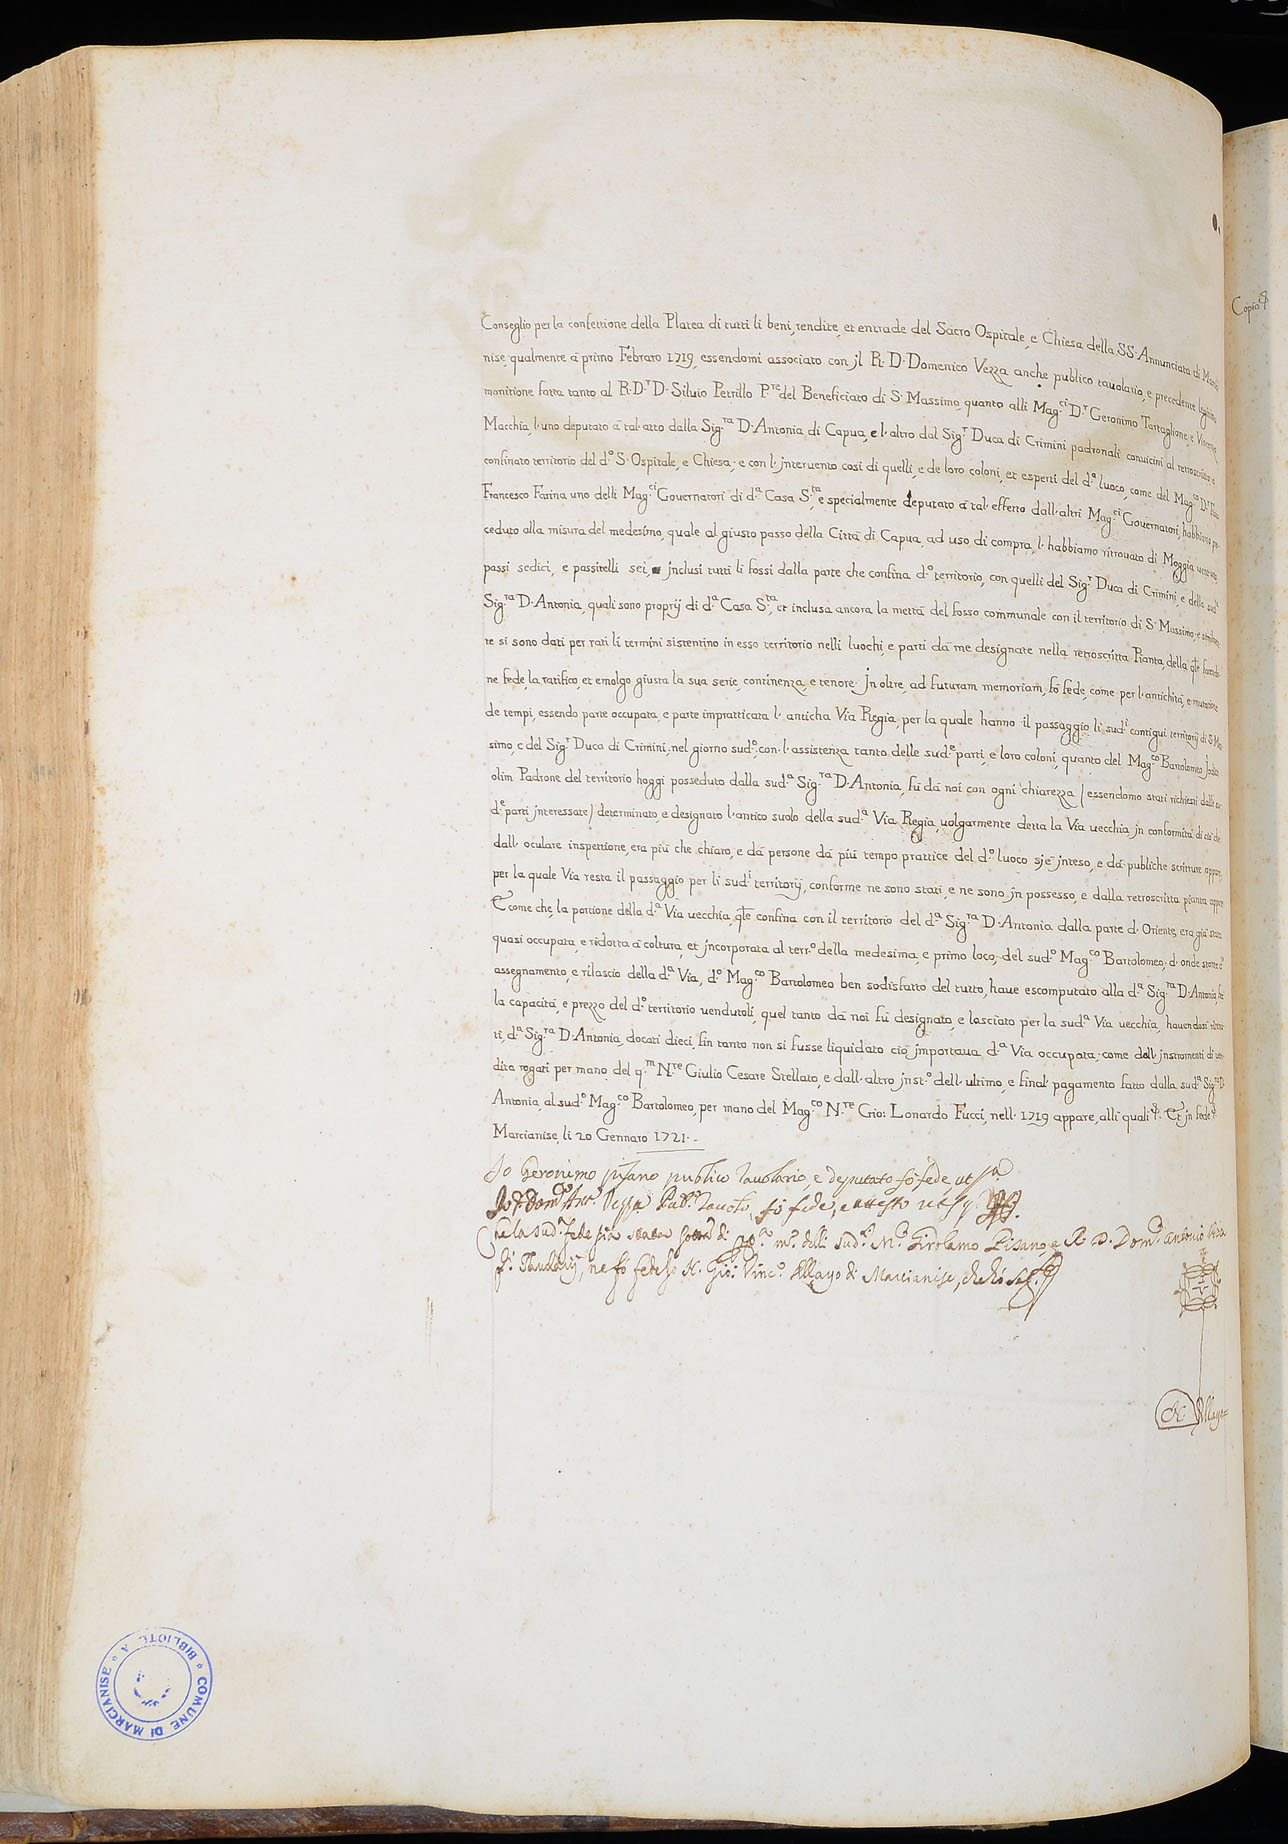 Copia
Conseglio per la confettione della Platea di tutti li beni, rendite, et entrade del Sacro Ospitale, e Chiesa della SS. Annunciata di Marcia
nise, qualmente à primo Febraro 1719, essendomi associato con jl R. D. Domenico Vezza anche publico tavolario, e precedente legitima
monitione fatta tanto al R. D.r D. Silvio Petrillo P.re del Beneficiato di S. Massimo, quanto alli Mag.ci D.r Geronimo Tartaglione, e Vincenzo
Macchia, l'uno deputato à tal'atto dalla Sig.ra D. Antonia di Capua, e l'altro dal Sig.r Duca di Crimini padronali convicini al retroscritto, e
confinato territorio del d.o S. Ospitale, e Chiesa; e con l'jntervento così di quelli, e de loro coloni, et esperti del d.o luoco, come del Mag.co D.r
Francesco Farina uno delli Mag.ci Governatori di d.a Casa S.ta, e specialmente deputato à tal'effetto dall'altri Mag.ci Governatori, habbiamo pro
ceduto alla misura del medesimo, quale al giusto passo della Città di Capua, ad uso di compra, l'habbiamo ritrovato di Moggia
passi sedici, e passitelli sei, jnclusi tutti li fossi dalla parte che confina d.o territorio, con quelli del Sig.r Duca di Crimini, e della sud.a
Sig.ra D. Antonia, quali sono proprij di d.a Casa S.ta, et inclusa ancora la mettà del fosso communale con il territorio di S. Massimo; e
te si sono dati per rati li termini sistentino in esso territorio nelli luochi, e parti dà me designate nella retroscritta Pianta, della q.le
ne fede, la ratifico, et emolgo giusta la sua serie, continenza, e tenore. Jn oltre, ad futuram memoriam, fò fede, come per l'antichità, e mutatione
de tempi, essendo parte occupata, e parte impratticata l'anticha Via Regia, per la quale hanno il passaggio li sud.i contigui territorij di S. Mas
simo, e del Sig.r Duca di Crimini, nel giorno sud.o, con l'assistenza tanto delle sud.e parti, e loro coloni, quanto del Mag.co Bartolomeo
olim Padrone del territorio hoggi posseduto dalla sud.a Sig.ra D. Antonia, fù dà noi con ogni chiarezza (essendomo stati richiesti dalle
d.e parti jnteressate) determinato, e designato l'antico suolo della sud.a Via Regia, volgarmente detta la Via vecchia, jn conformità di ciò che
dall'oculare inspettione, era più che chiaro, e dà persone dà più tempo prattice del d.o luoco s'jè jnteso, e dà publiche scritture appare,
per la quale Via resta il passaggio per li sud.i territorij, conforme ne sono stati, e ne sono jn possesso, e dalla retroscritta pianta appare
E come che, la portione della d.a Via vecchia, q.le confina con il territorio del d.a Sig.ra D. Antonia dalla parte d'Oriente, era già stata
quasi occupata, e ridotta à coltura, et jncorporata al terr.o della medesima, e primo loco, del sud.o Mag.co Bartolomeo; d'onde stante d.o
assegnamento, e rilascio della d.a Via, d.o Mag.co Bartolomeo ben sodisfatto del tutto, have escomputato alla d.a Sig.ra D. Antonia
la capacità, e prezzo del d.o territorio vendutoli, quel tanto dà noi fù designato, e lasciato per la sud.a Via vecchia, havendosi
ti, d.a Sig.ra D. Antonia, docati dieci, fin tanto non si fusse liquidato ciò jmportava d.a Via occupata; come dall'jnstromenti di ven
dita rogati per mano del q.m N.re Giulio Cesare Stellato, e dall'altro jnst.o dell'ultimo, e final'pagamento fatto dalla sud.a Sig.ra D.
Antonia, al sud.o Mag.co Bartolomeo, per mano del Mag.co N.re Gio: Lonardo Fucci, nell'1719 appare, alli quali. Et jn fede
Marcianise, li 20 Gennaro 1721.
Io Geronimo pisano publico Tavolario, e deputato fò fede, ut s.a
Io D. Dom.co Ant.o Vezza Pub.o Tavol.o, fò fede, e attesto ut s.a
Che la sud.a fede sia stata di m.o delli sud.i M.co Girolamo Pisano, e R. D. Dom.co Antonio Vezza
Tavolarij, ne fò fede Io N. Gio: Vinc.o Allayo di Marcianise,
N. Allayo
COMUNE DI MARCIANISE